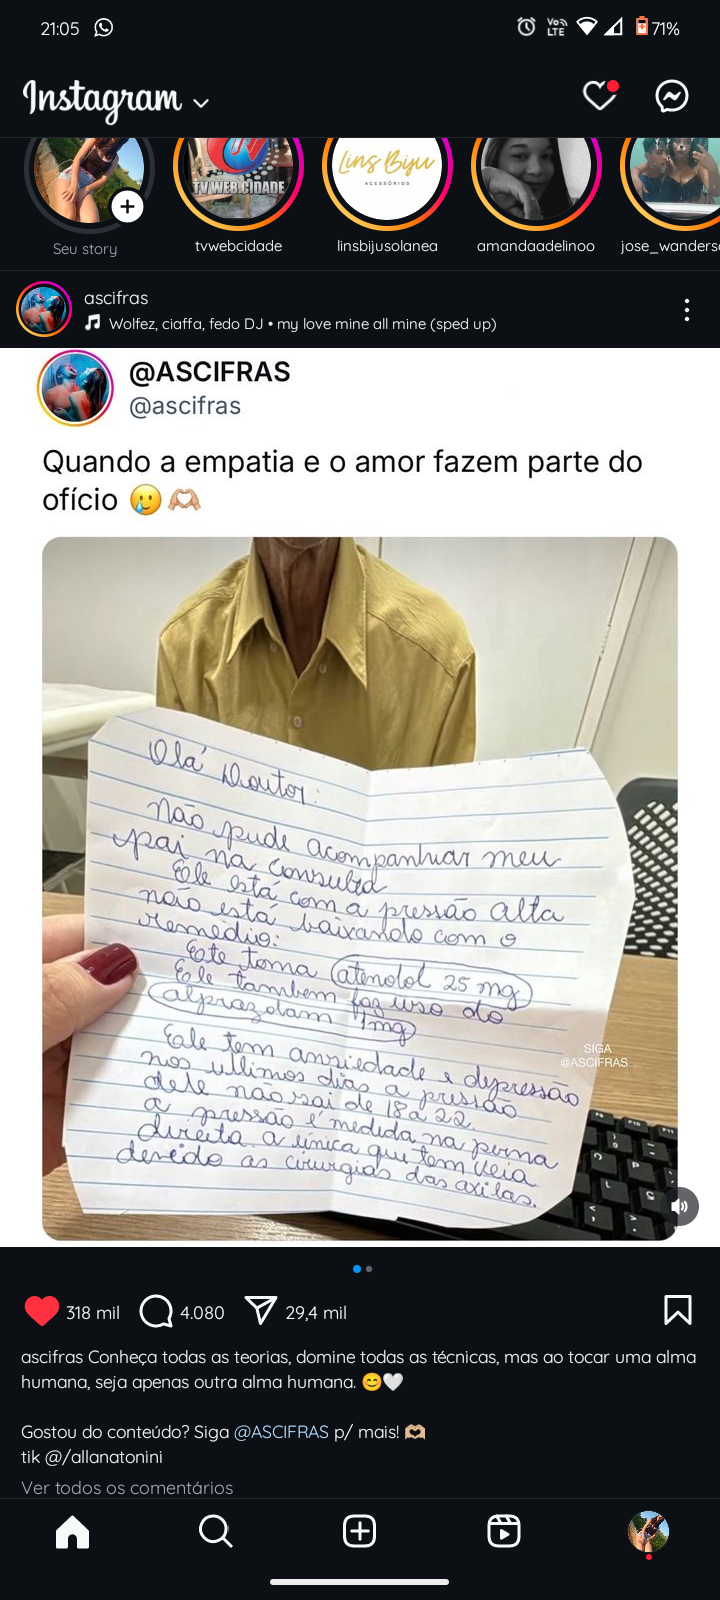 21:05
Vo LTE
71%
Instagram
TV WEB CIDADE
Lins Biju
ACESSÓRIOS
Seu story
tvwebcidade
linsbijusolanea
amandaadelinoo
jose_wanders
ascifras
Wolfez, ciaffa, fedo DJ • my love mine all mine (sped up)
@ASCIFRAS
@ascifras
Quando a empatia e o amor fazem parte do
ofício 🥲🫶🏼
Olá Doutor:
Não pude acompanhar meu
pai na consulta
Ele está com a pressão alta
não está baixando com o
remédio:
Ele toma atenolol 25 mg
Ele também faz uso do
alprazolam 1mg
Ele tem ansiedade e depressão
nos ultimos dias a pressão
dele não sai de 18 a 22.
a pressão é medida na perna
direita a única que tem veia
devido as cirurgias das axilas.
SIGA
@ASCIFRAS
318 mil
4.080
29,4 mil
ascifras Conheça todas as teorias, domine todas as técnicas, mas ao tocar uma alma
humana, seja apenas outra alma humana. 😊🤍
Gostou do conteúdo? Siga @ASCIFRAS p/ mais! 🫶🏼
tik @/allanatonini
Ver todos os comentários